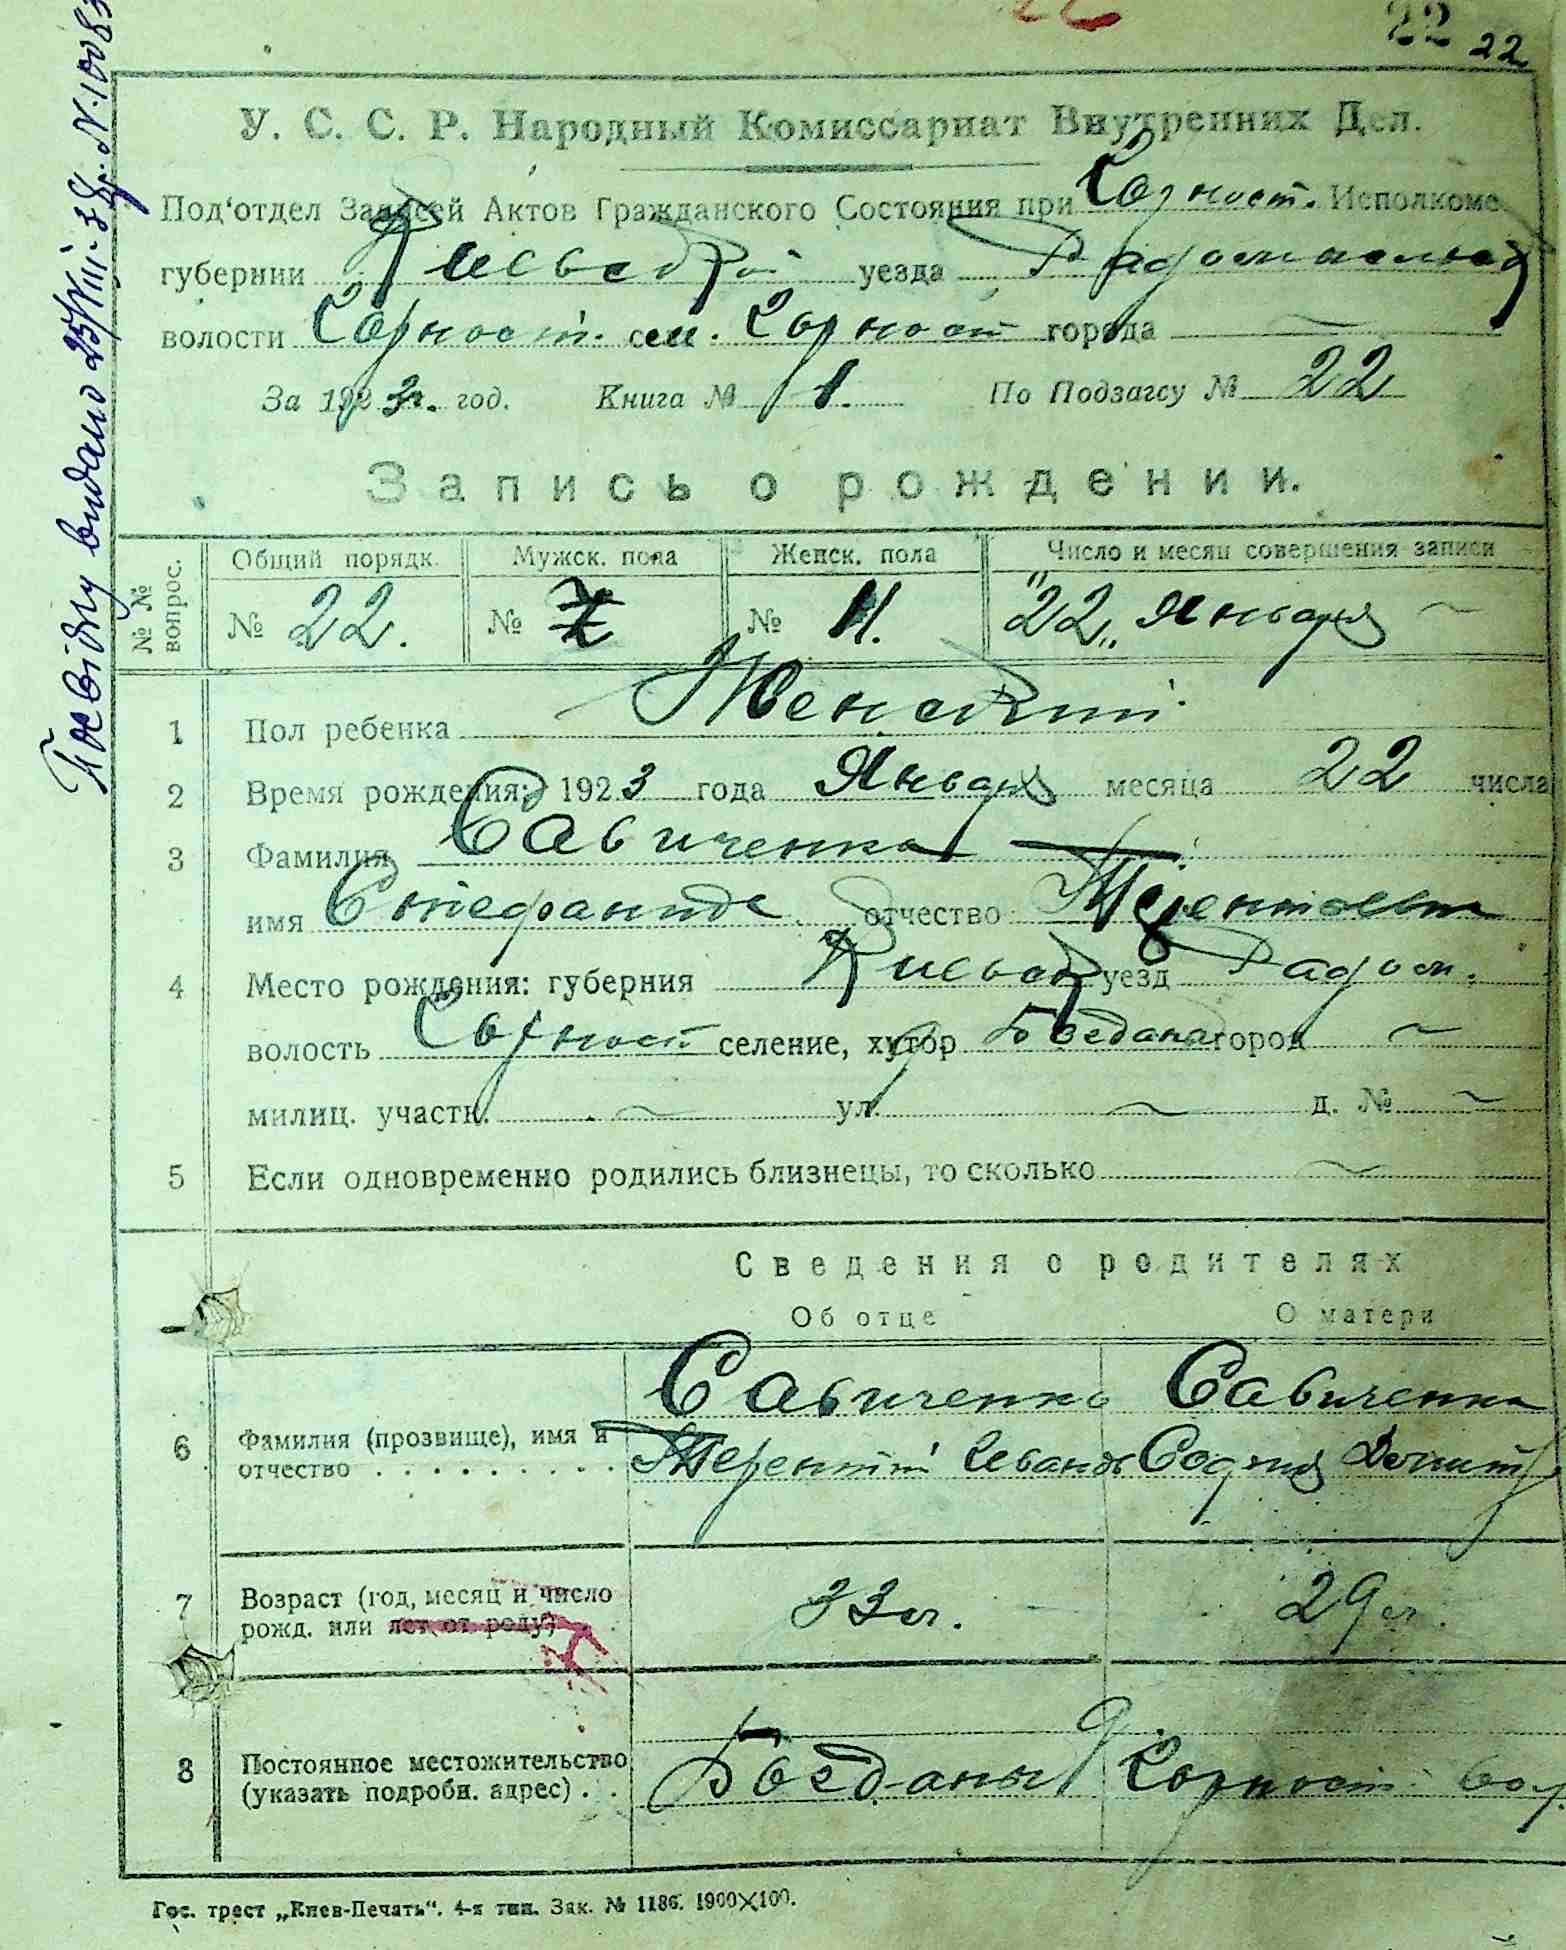 22 22
У. С. С. Р. Народный Комиссариат Внутренних Дел.
Под'отдел Записей Актов Гражданского Состояния при Горност. Исполкоме
губернии Киевской уезда Радомысльск
волости Горност. сел. Горност города
За 1923г. год. Книга № 1. По Подзагсу № 22
Запись о рождении.
№ № вопрос. Общий порядк. Мужск. пола Женск. пола Число и месяц совершения записи
№ 22. № № 11. "22" Января
1 Пол ребенка Женский
2 Время рождения: 1923 года Января месяца 22 числа
3 Фамилия Савиченко
имя Стефанида отчество Терентьевна
4 Место рождения: губерния Киевск уезд Радом.
волость Горност селение, хутор Богдана город
милиц. участк. ул. д. №
5 Если одновременно родились близнецы, то сколько
Сведения о родителях
Об отце О матери
Савиченко Савиченко
6 Фамилия (прозвище), имя и
отчество . . . . . . . . . Терентий Иванов София Дмитр
7 Возраст (год, месяц и число
рожд. или лет от роду) 33 л. 29 л.
8 Постоянное местожительство
(указать подробн. адрес) . . Богданы Горност. вол.
Гос. трест „Киев-Печать“. 4-я тип. Зак. № 1186. 1900×100.
Посвідку видано 25/VIII-38р. N.10083